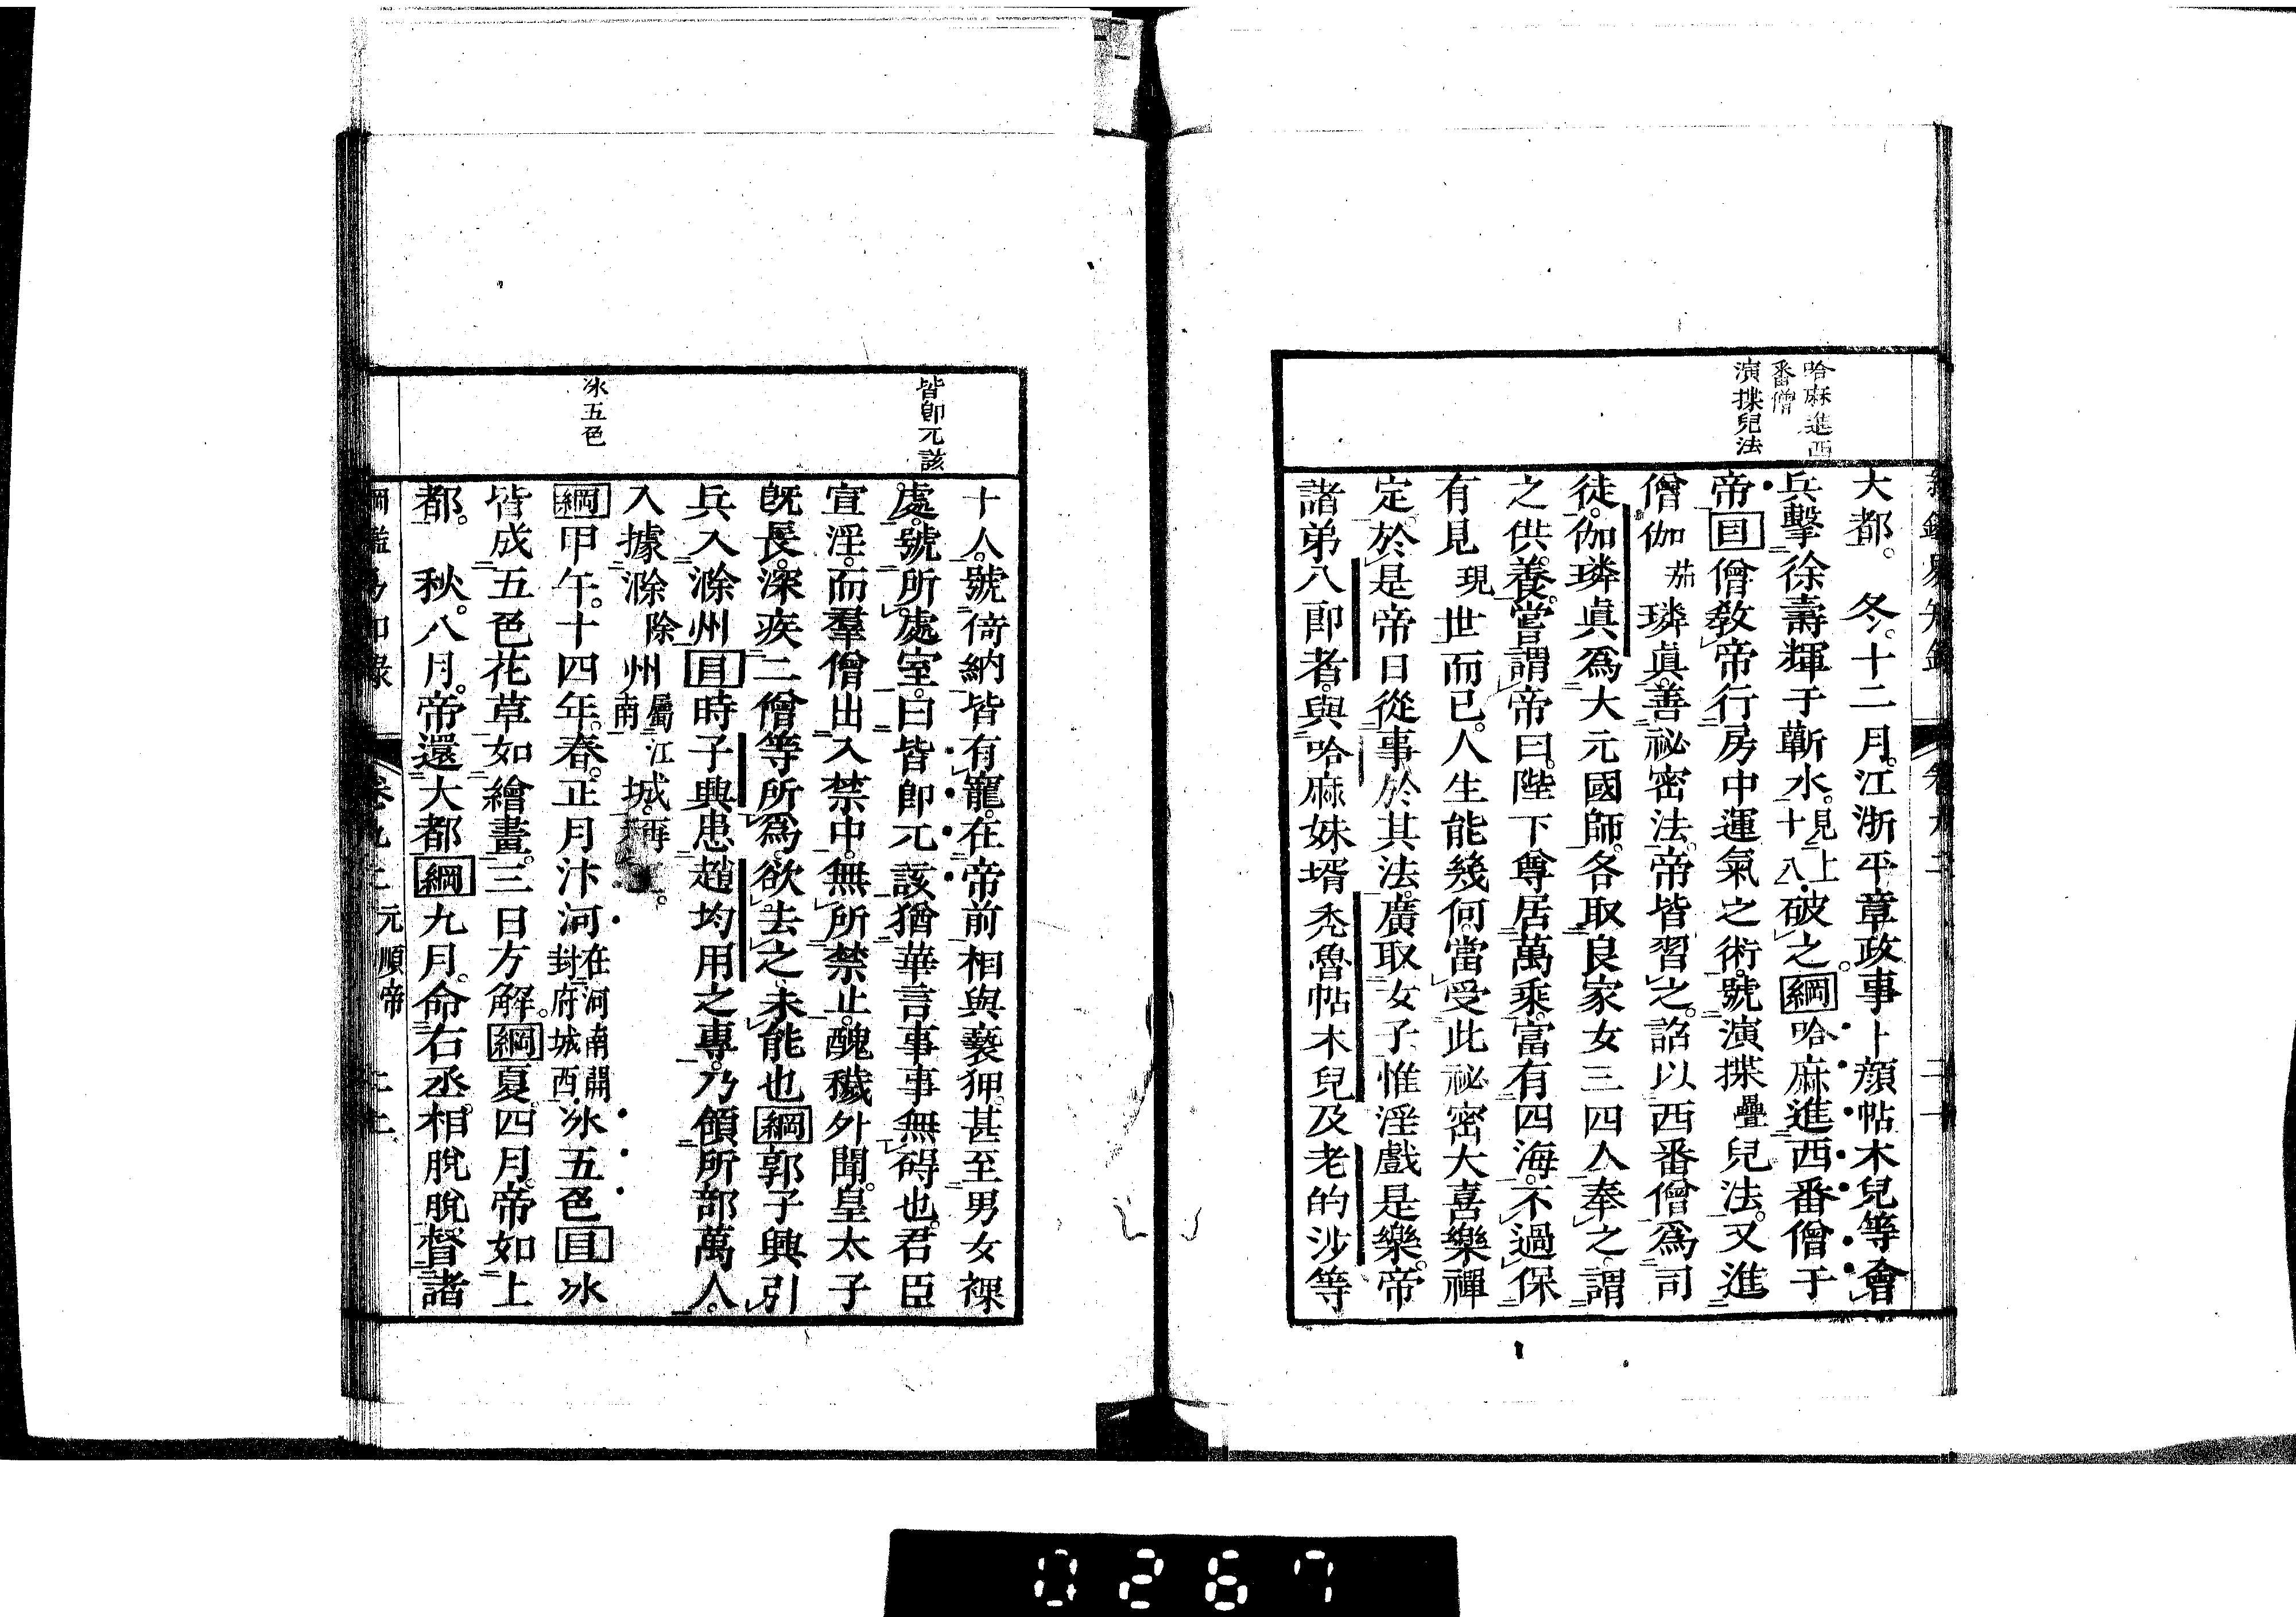 哈麻進西
番僧
演揲兒法
大都。冬。十二月。江浙平章政事卜顔帖木兒等會
兵擊徐壽輝于蘄水。見上十八破之。綱哈麻進西番僧于
帝目僧教帝行房中運氣之術。號演揲疊兒法。又進
僧伽茄璘眞。善祕密法。帝皆習之。詔以西番僧爲司
徒。伽璘眞爲大元國師。各取良家女三四人奉之。謂
之供養。嘗謂帝曰。陛下尊居萬乘。富有四海。不過保
有見現世而已。人生能幾何。當受此祕密大喜樂禪
定。於是帝日從事於其法。廣取女子。惟淫戲是樂。帝
諸弟八郎者。與哈麻妹壻禿魯帖木兒及老的沙等
皆卽兀該
冰五色
十人。號倚納皆有寵。在帝前相與褻狎。甚至男女裸
處。號所處室。曰皆卽兀該。猶華言事事無碍也。君臣
宣淫。而羣僧出入禁中。無所禁止。醜穢外聞。皇太子
旣長。深疾二僧等所爲。欲去之。未能也綱郭子興引
兵入滁州目時子興患趙均用之專。乃領所部萬人。
入據滁除州屬江南城。再。
綱甲午。十四年。春。正月汴河在河南開封府城西冰五色目冰
皆成五色花草如繪畫。三日方解。綱夏。四月。帝如上
都。秋。八月。帝還大都綱九月。命右丞相脫脫督諸
元順帝